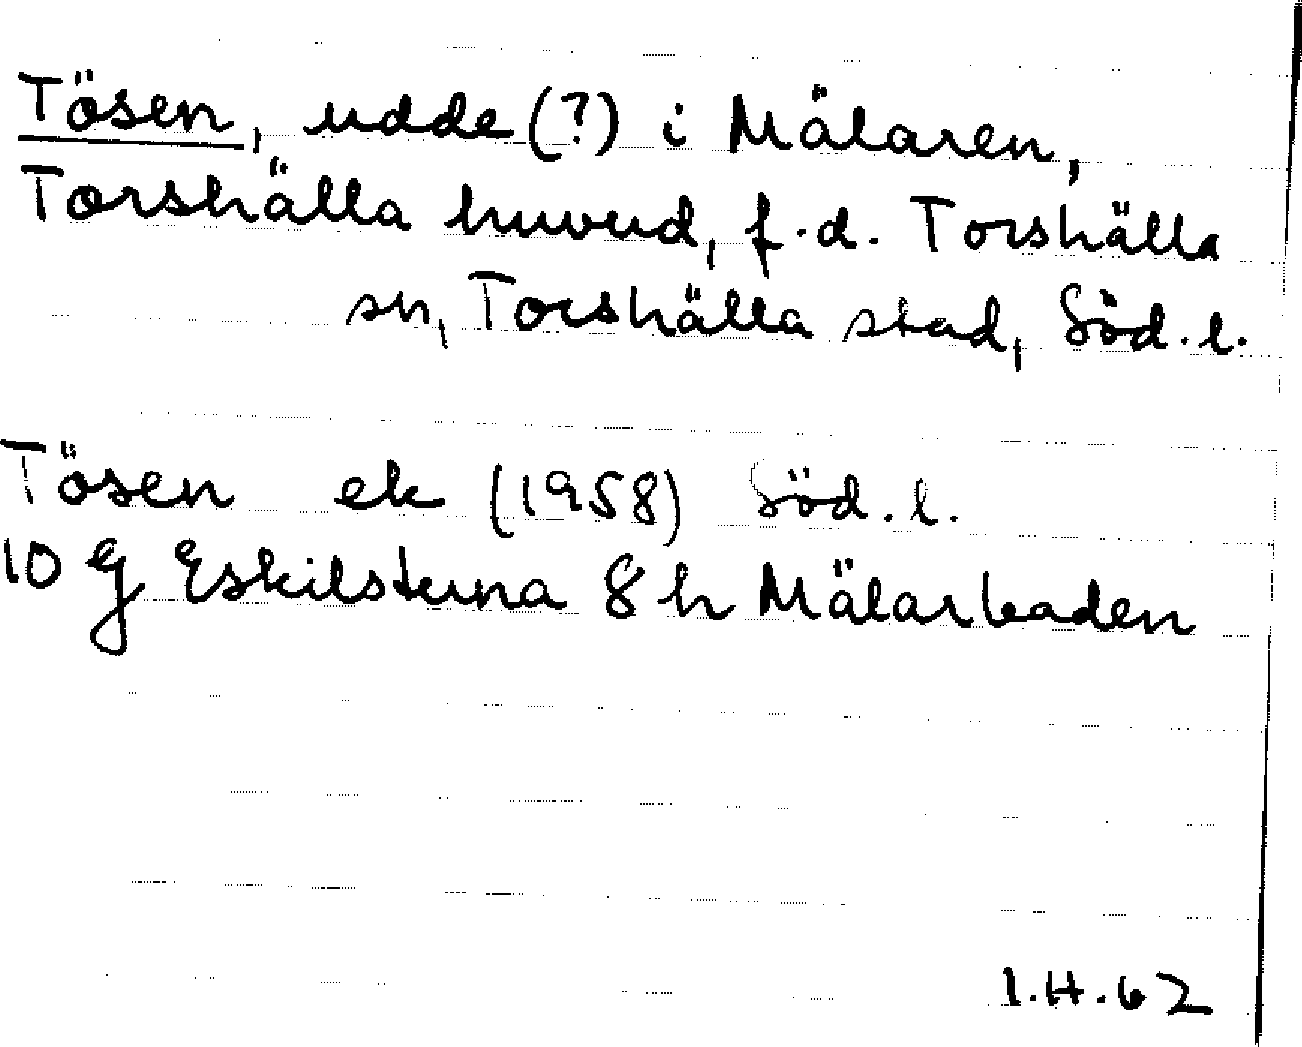 Tösen, udde (?) i Mälaren,
Torshälla huvud, f.d. Torshälla
sn, Torshälla stad, Söd.l.
Tösen ek (1958) Söd.l.
10 g Eskilstuna 8 h Mälarbaden
I.H.62